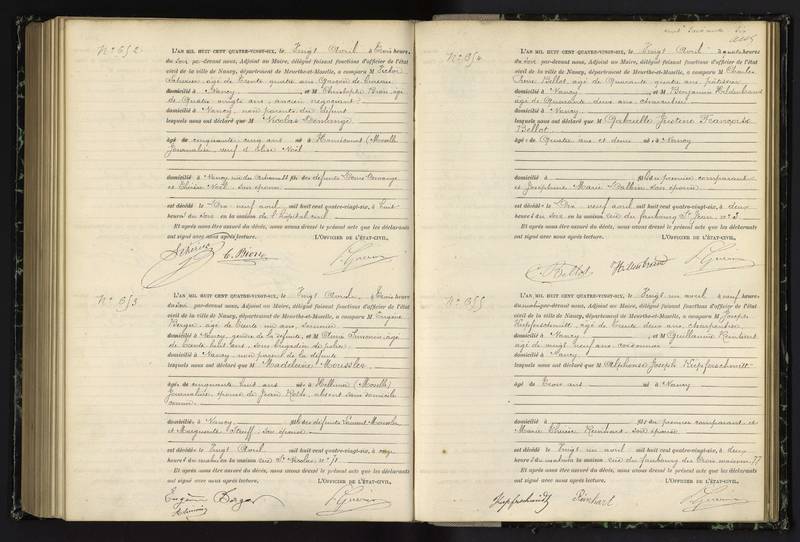 N° 652
L'AN MIL HUIT CENT QUATRE-VINGT-SIX, le Vingt Avril à trois heures
du Soir par-devant nous, Adjoint au Maire, délégué faisant fonctions d'officier de l'état
civil de la ville de Nancy, département de Meurthe-et-Moselle, a comparu M Victor
âgé de trente quatre ans Garçon de
domicilié à Nancy, et M Christophe Bion âgé
de Quatre vingts ans, ancien négociant
domicilié à Nancy, non parents du défunt
lesquels nous ont déclaré que M Nicolas
âgé de cinquante cinq ans né à (Moselle)
Journalier, veuf d'Elise Noël
domicilié à Nancy, rue fils des défunts
et Thérèse Noël, son épouse
est décédé le Dix neuf avril mil huit cent quatre-vingt-six, à huit
heures du Soir en la maison de l'hôpital civil
Et après nous être assuré du décès, nous avons dressé le présent acte que les déclarants
ont signé avec nous après lecture. L'OFFICIER DE L'ÉTAT-CIVIL,
C. Bion
N° 653
L'AN MIL HUIT CENT QUATRE-VINGT-SIX, le Vingt Avril, à trois heures
du Soir par-devant nous, Adjoint au Maire, délégué faisant fonctions d'officier de l'état
civil de la ville de Nancy, département de Meurthe-et-Moselle, a comparu M Eugène
âgé de trente un ans,
domicilié à Nancy, gendre de la défunte, et M
de trente huit ans, sous brigadier de police
domicilié à Nancy, non parent de la défunte
lesquels nous ont déclaré que M Madeleine Moussler
âgée de cinquante huit ans née à Hellimer (Moselle)
Journalière, épouse de Jean absent sans domicile
connu
domiciliée à Nancy fille des défunts Laurent Moussler
et Marguerite son épouse
est décédée le Vingt Avril mil huit cent quatre-vingt-six, à onze
heures du matin en la maison rue St Nicolas n° 71
Et après nous être assuré du décès, nous avons dressé le présent acte que les déclarants
ont signé avec nous après lecture. L'OFFICIER DE L'ÉTAT-CIVIL,
Eugène
N° 654
L'AN MIL HUIT CENT QUATRE-VINGT-SIX, le Vingt Avril à quatre heures
du Soir par-devant nous, Adjoint au Maire, délégué faisant fonctions d'officier de l'état
civil de la ville de Nancy, département de Meurthe-et-Moselle, a comparu M Charles
Bellot, âgé de Quarante quatre ans, pâtissier
domicilié à Nancy, et M Benjamin Hildenbrand
âgé de Quarante deux ans, charcutier
domicilié à Nancy
lesquels nous ont déclaré que M Gabrielle Justine Françoise
Bellot
âgée de Quatre ans et demi née à Nancy
domiciliée à fille du premier comparant
et Joséphine Marie son épouse
est décédée le Dix neuf avril mil huit cent quatre-vingt-six, à deux
heures du soir en la maison rue du faubourg St Jean, n° 3
Et après nous être assuré du décès, nous avons dressé le présent acte que les déclarants
ont signé avec nous après lecture. L'OFFICIER DE L'ÉTAT-CIVIL,
Bellot Hildenbrand
N° 655
L'AN MIL HUIT CENT QUATRE-VINGT-SIX, le Vingt un avril à neuf heures
du matin par-devant nous, Adjoint au Maire, délégué faisant fonctions d'officier de l'état
civil de la ville de Nancy, département de Meurthe-et-Moselle, a comparu M Joseph
Kupferschmitt, âgé de trente deux ans, charpentier
domicilié à Nancy, et M Guillaume Reinhart
âgé de vingt neuf ans, cordonnier
domicilié à Nancy
lesquels nous ont déclaré que M Alphonse Joseph Kupferschmitt
âgé de trois ans né à Nancy
domicilié à fils du premier comparant et
Marie Thérèse Reinhart, son épouse
est décédé le Vingt un avril mil huit cent quatre-vingt-six, à deux
heures du matin en la maison rue du faubourg des Trois maisons 77
Et après nous être assuré du décès, nous avons dressé le présent acte que les déclarants
ont signé avec nous après lecture. L'OFFICIER DE L'ÉTAT-CIVIL,
Kupferschmitt Reinhart